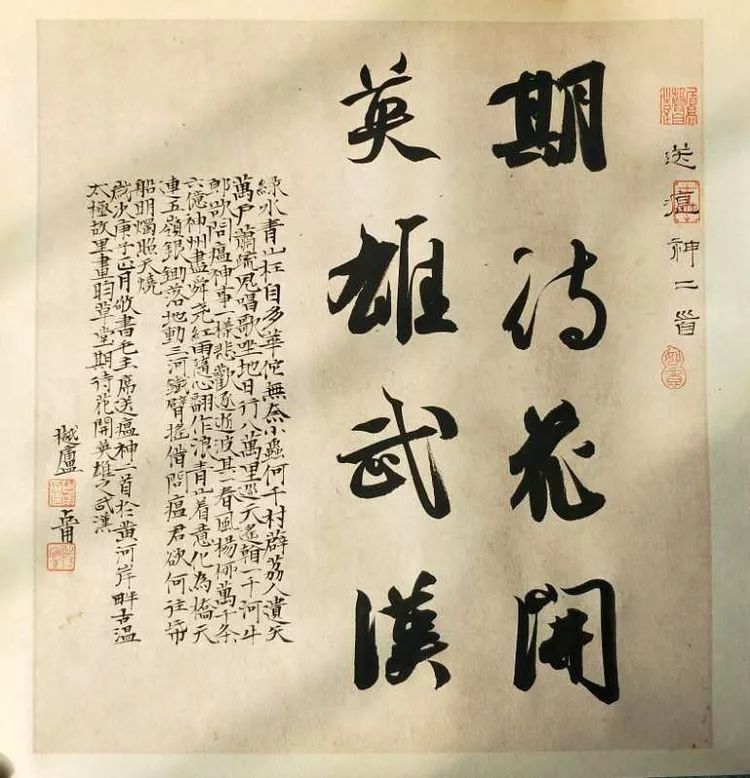 送瘟神二首
期待花開
英雄武漢
綠水青山枉自多華佗無奈小蟲何千村薜荔人遺矢
萬戶蕭疏鬼唱歌坐地日行八萬里巡天遙看一千河牛
郎欲問瘟神事一樣悲歡逐逝波其二春風楊柳萬千條
六億神州盡舜堯紅雨隨心翻作浪青山着意化為橋天
連五嶺銀鋤落地動三河鐵臂搖借問瘟君欲何往帋
船明燭照天燒
歲次庚子正月敬書毛主席送瘟神二首於黃河岸畔古溫
太極故里畫昀草堂期待花開英雄之武漢
如意